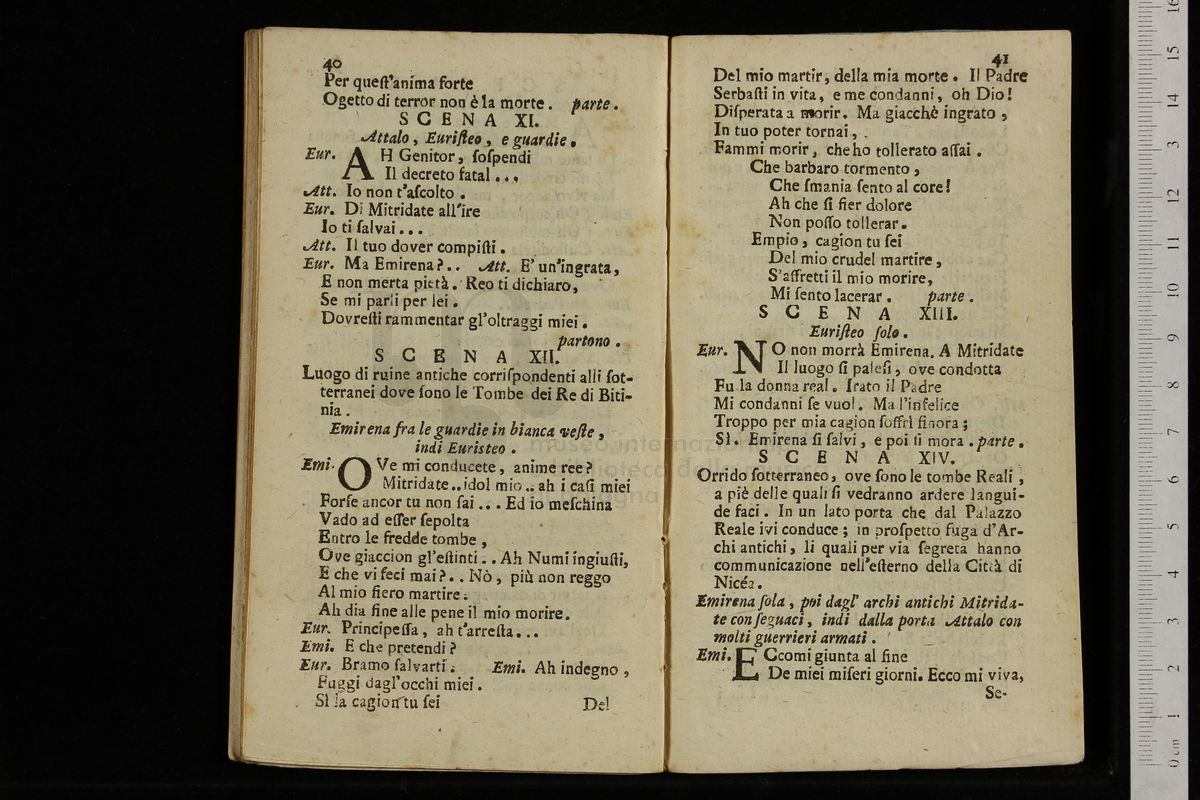 40
Per queſt'anima forte
Ogetto di terror non è la morte. parte.
SCENA XI.
Attalo, Euriſteo, e guardie.
Eur. AH Genitor, ſoſpendi
Il decreto fatal...
Att. Io non t'aſcolto.
Eur. Di Mitridate all'ire
Io ti ſalvai...
Att. Il tuo dover compiſti.
Eur. Ma Emirena?.. Att. E' un'ingrata,
E non merta pietà. Reo ti dichiaro,
Se mi parli per lei.
Dovreſti rammentar gl'oltraggi miei.
partono.
SCENA XII.
Luogo di ruine antiche corriſpondenti alli ſot-
terranei dove ſono le Tombe dei Re di Biti-
nia.
Emirena fra le guardie in bianca veſte,
indi Euristeo.
Emi. OVe mi conducete, anime ree?
Mitridate..idol mio.. ah i caſi miei
Forſe ancor tu non ſai... Ed io meſchina
Vado ad eſſer ſepolta
Entro le fredde tombe,
Ove giaccion gl'eſtinti.. Ah Numi ingiuſti,
E che vi feci mai?.. Nò, più non reggo
Al mio fiero martire.
Ah dia fine alle pene il mio morire.
Eur. Principeſſa, ah t'arreſta...
Emi. E che pretendi?
Eur. Bramo ſalvarti. Emi. Ah indegno,
Fuggi dagl'occhi miei.
Sì la cagion tu ſei
Del
41
Del mio martir, della mia morte. Il Padre
Serbaſti in vita, e me condanni, oh Dio!
Diſperata a morir. Ma giacchè ingrato,
In tuo poter tornai,
Fammi morir, che ho tollerato aſſai.
Che barbaro tormento,
Che ſmania ſento al core!
Ah che ſi fier dolore
Non poſſo tollerar.
Empio, cagion tu ſei
Del mio crudel martire,
S'affretti il mio morire,
Mi ſento lacerar. parte.
SCENA XIII.
Euriſteo ſolo.
Eur. NO non morrà Emirena. A Mitridate
Il luogo ſi paleſi, ove condotta
Fu la donna real. Irato il Padre
Mi condanni ſe vuol. Ma l'infelice
Troppo per mia cagion ſoffrì finora;
Sì. Emirena ſi ſalvi, e poi ſi mora. parte.
SCENA XIV.
Orrido ſotterraneo, ove ſono le tombe Reali,
a piè delle quali ſi vedranno ardere langui-
de faci. In un lato porta che dal Palazzo
Reale ivi conduce; in proſpetto fuga d'Ar-
chi antichi, li quali per via ſegreta hanno
communicazione nell'eſterno della Città di
Nicéa.
Emirena ſola, poi dagl' archi antichi Mitrida-
te con ſeguaci, indi dalla porta Attalo con
molti guerrieri armati.
Emi. ECcomi giunta al fine
De miei miſeri giorni. Ecco mi viva,
Se-